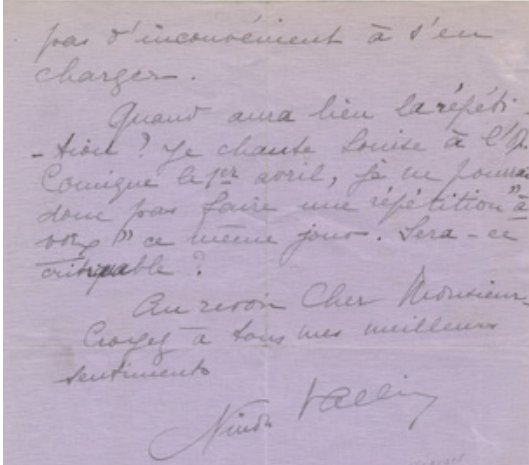 pas d'inconvénient à s'en
charger.
Quand aura lieu la répéti
-tion ? Je chante Louise à l'Op.
Comique le 1er avril, je ne pourrai
donc pas faire une répétition "à
voix" ce même jour. Sera-ce
?
Au revoir Cher Monsieur.
Croyez à tous mes meilleurs
sentiments
Ninon Vallin